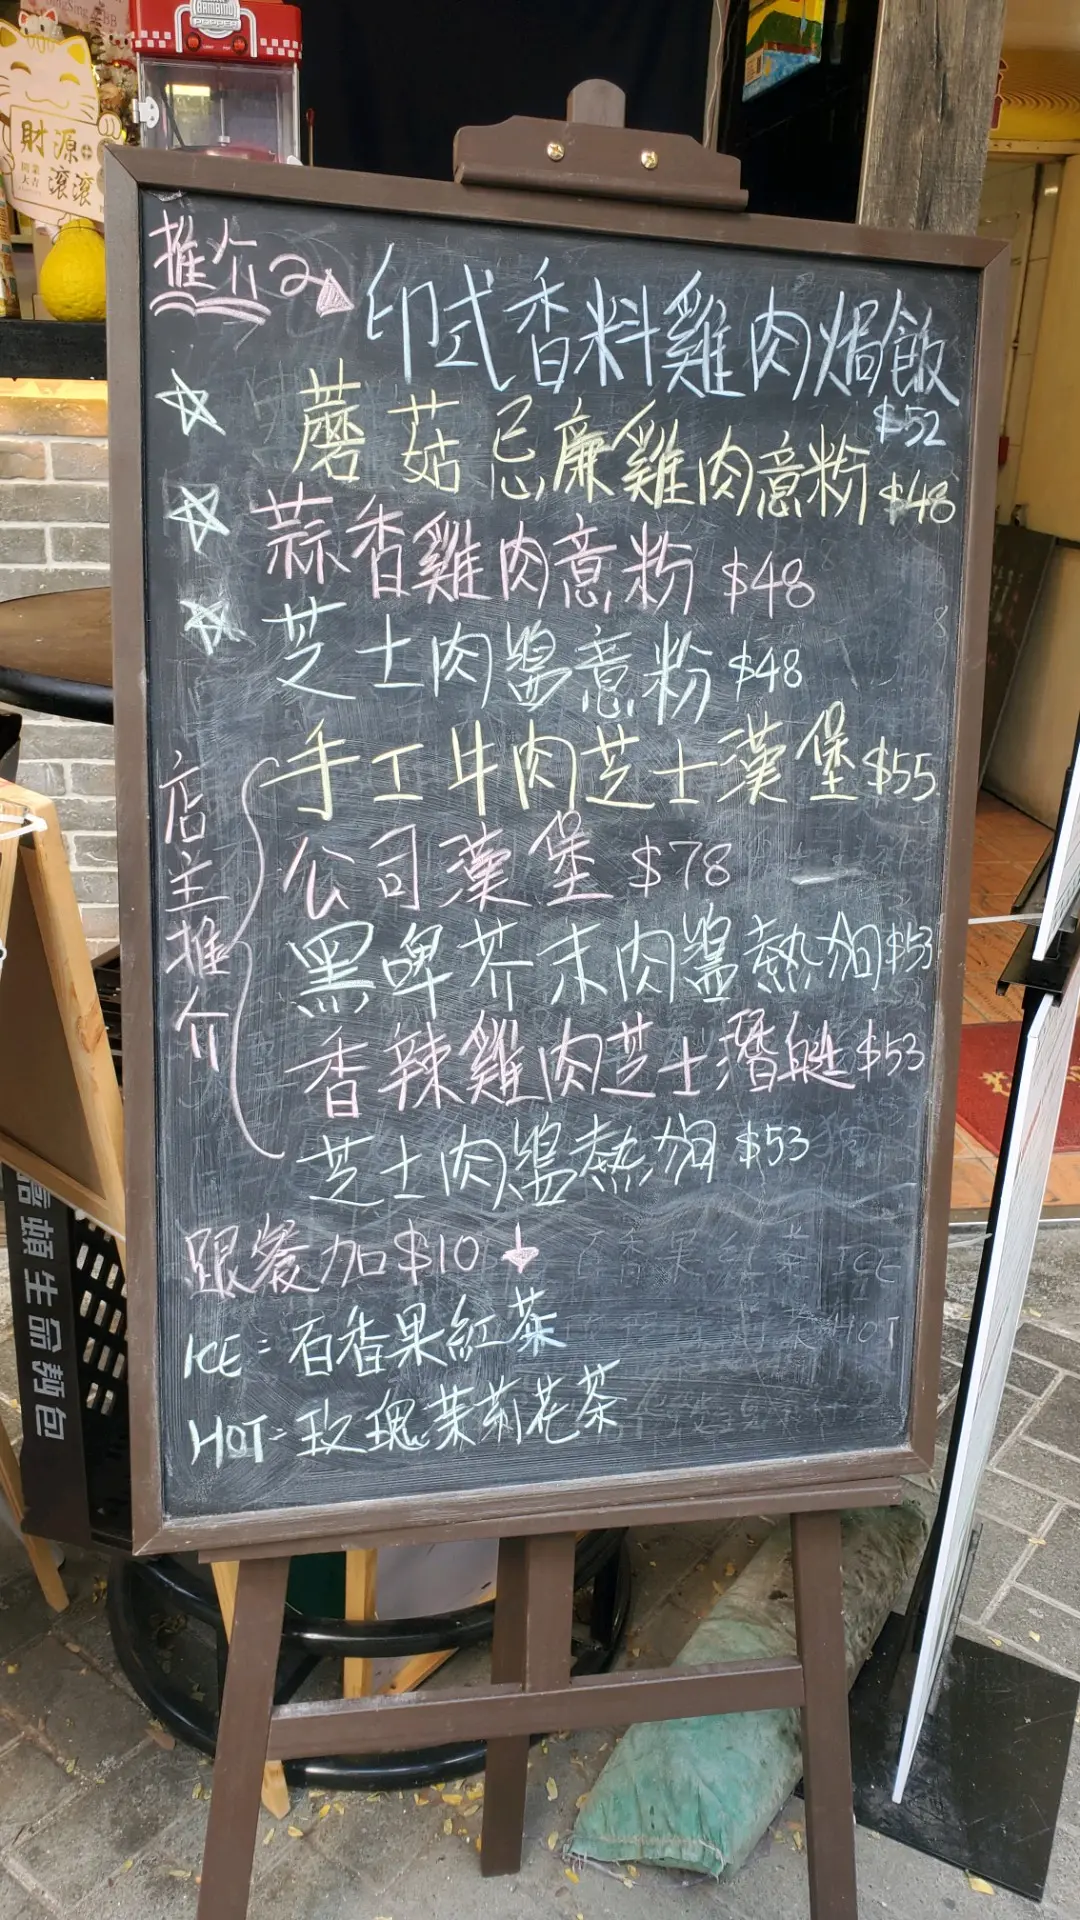 財源
滾滾
開業
大吉
BAMBINO
POPPER
推介
印式香料雞肉焗飯
$52
蘑菇忌廉雞肉意粉 $48
蒜香雞肉意粉 $48
芝士肉醬意粉 $48
店主推介
手工牛肉芝士漢堡 $55
公司漢堡 $78
黑啤芥末肉醬熱狗 $53
香辣雞肉芝士潛艇 $53
芝士肉醬熱狗 $53
跟餐加$10 ↓
ICE: 百香果紅茶
HOT: 玫瑰茉莉花茶
頓生品麵包